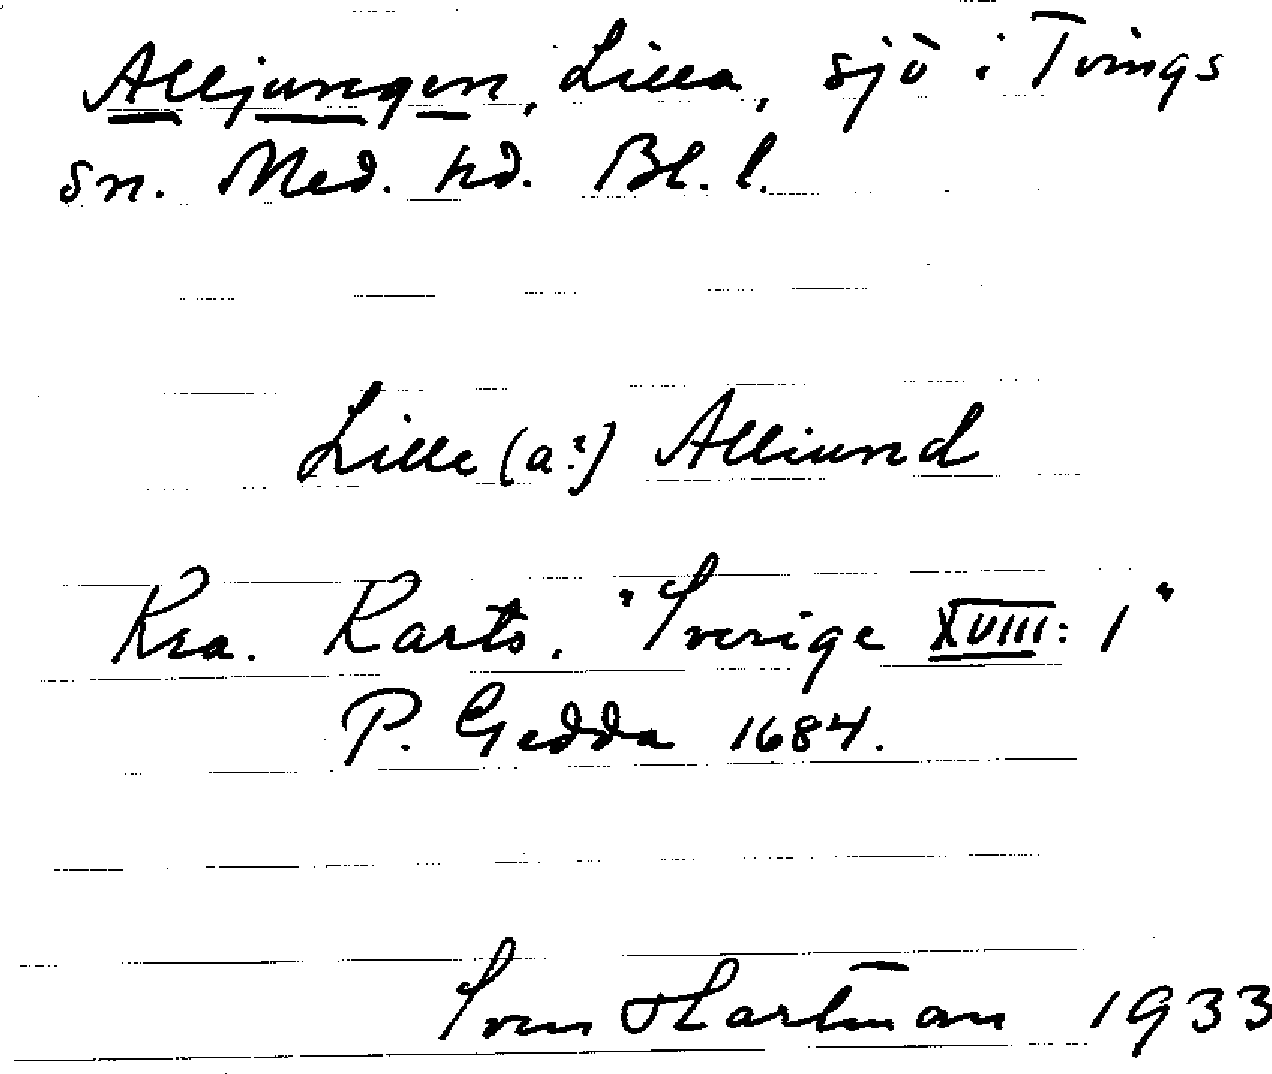 Alljungen, Lilla, sjö i Tvings
sn. Med. hd. Bl. l.
Lille (a?) Alliund
Kra. Karts. "Sverige XVIII: 1"
P. Gedda 1684.
Sven Hartman 1933